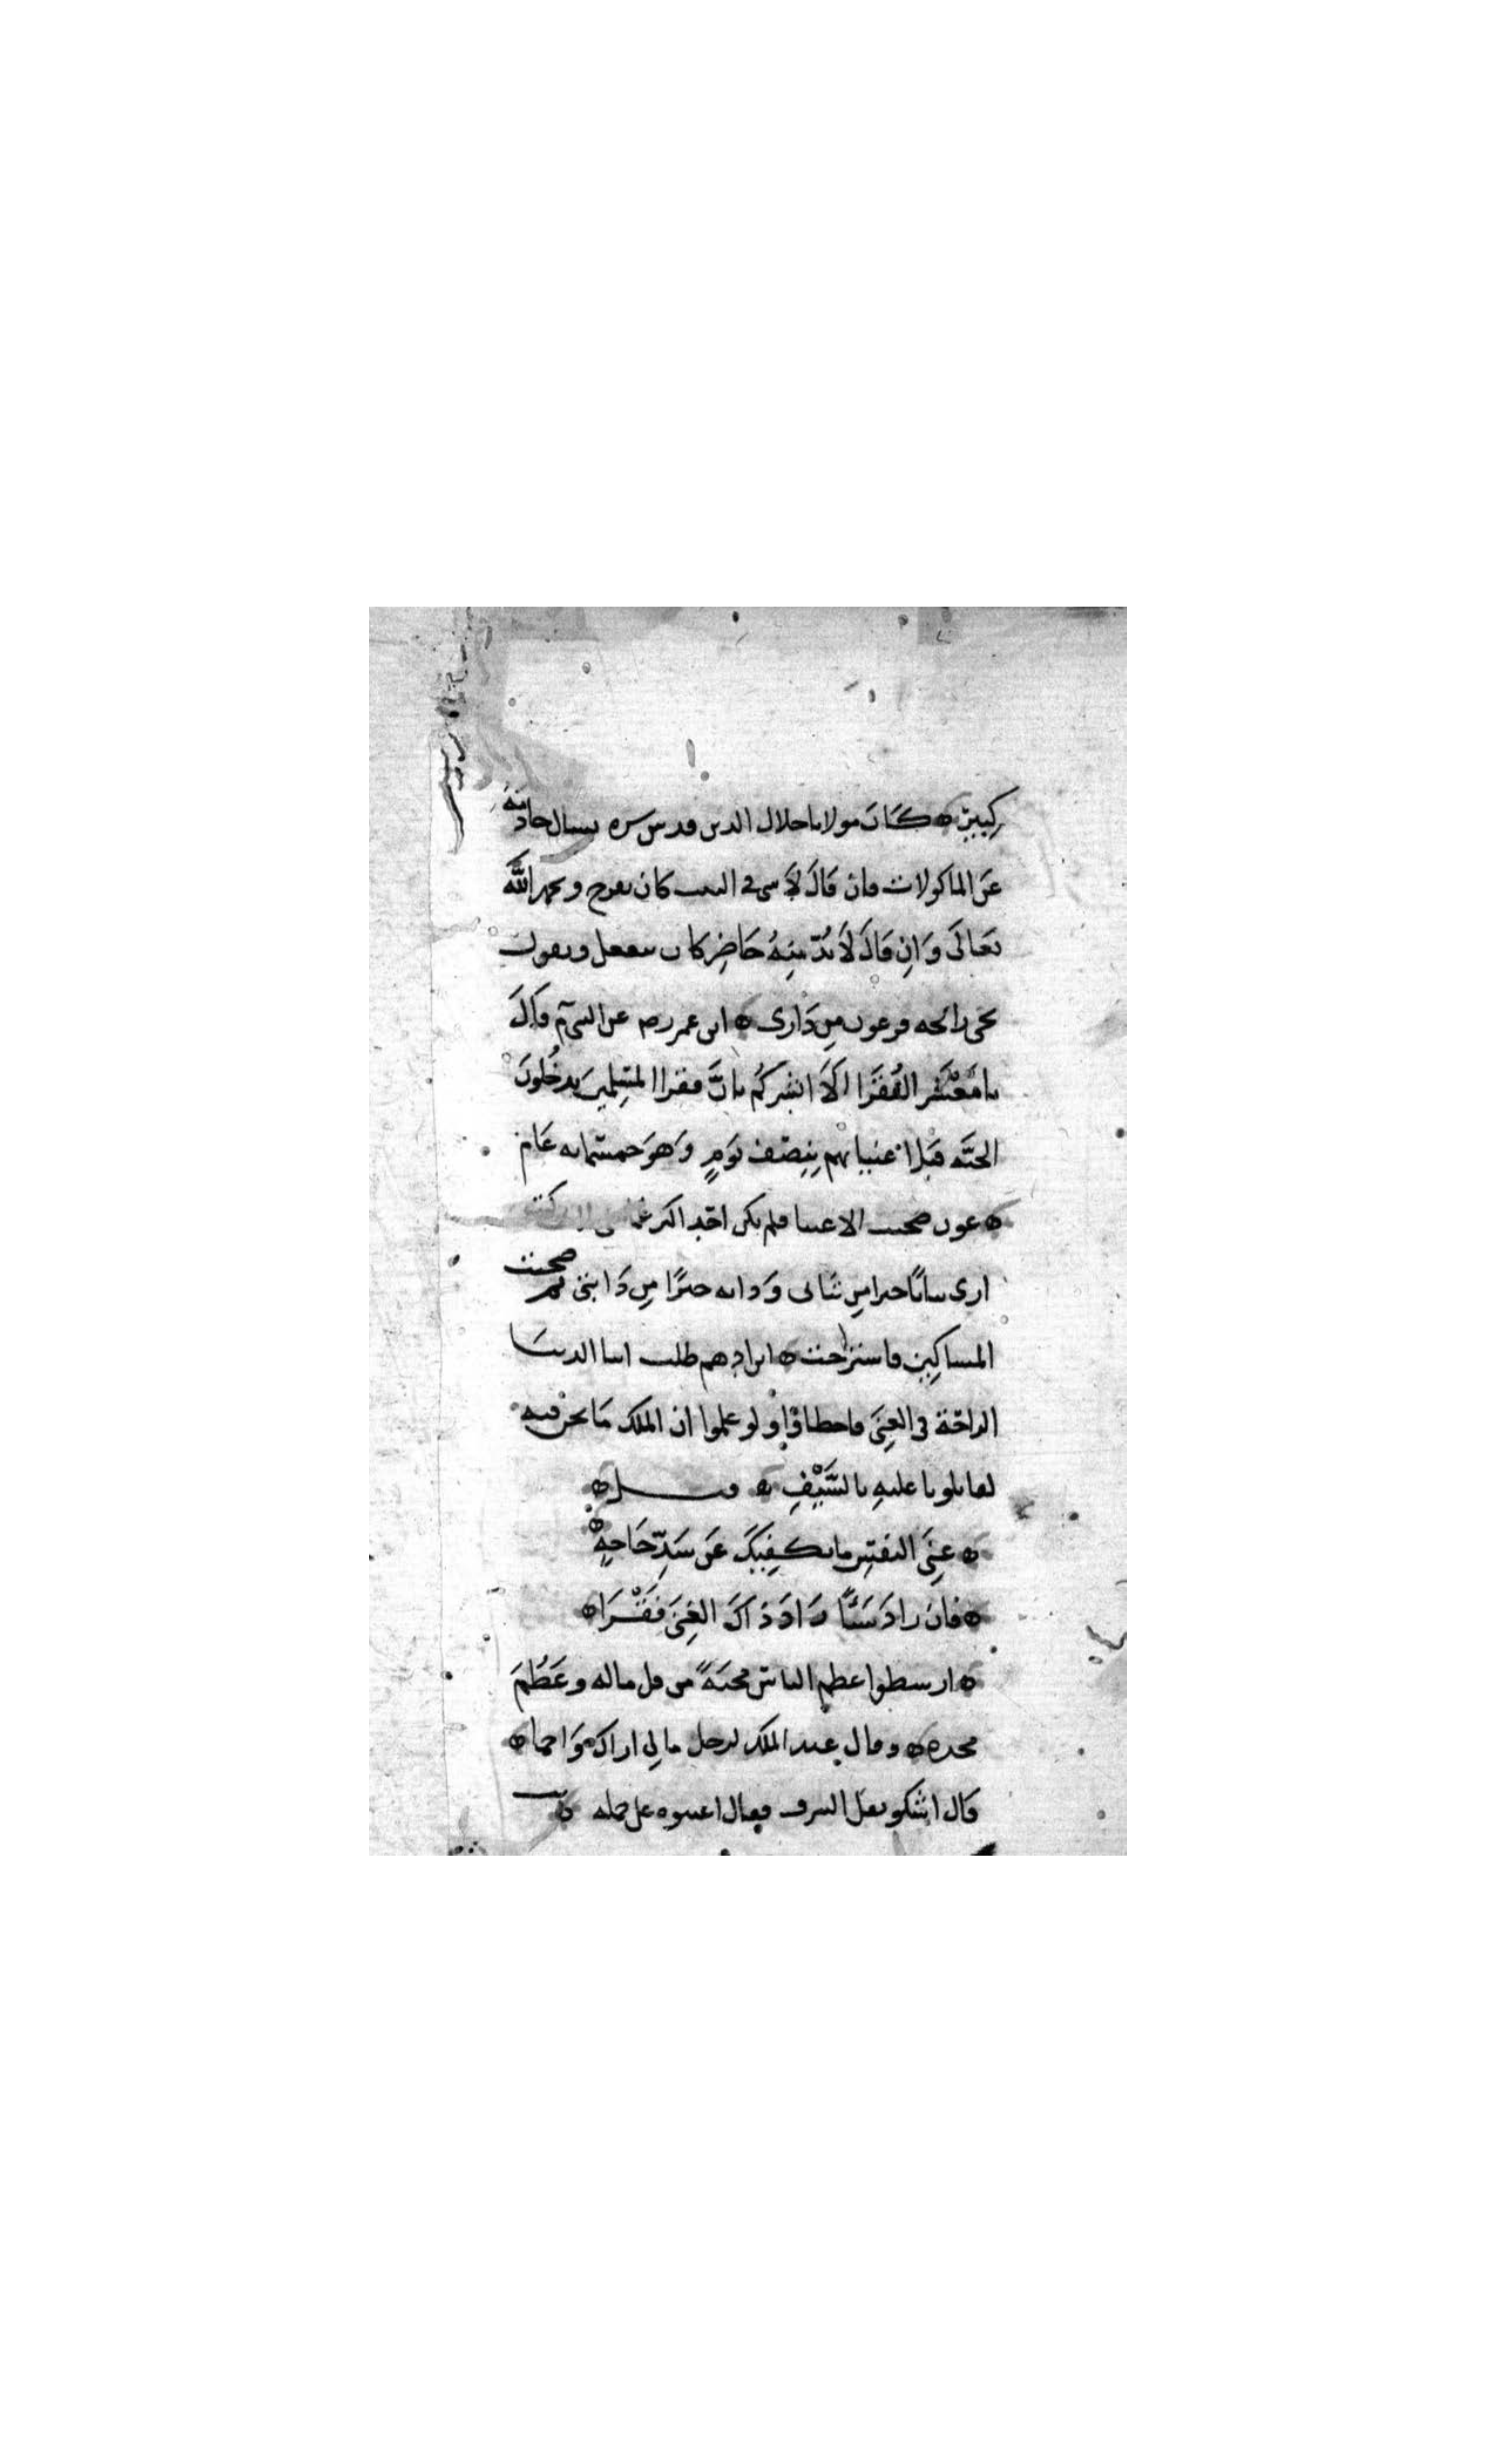 كِيبين ه كَانَ مولانا جلال الدين قدس سره يسال خادمَهُ
عَن الماكولات فان قَالَ لَا شي في البيت كان يفرح ويحمد اللَّه
تعَالَى وَاِن قَالَ لَا بُدّ مِنهُ حَاضِر كان ينفعل ويقول
تجي رائحه فرعون مِن دَارى ه ابن عمر رضه عن النبي م قَالَ
يا مَعْشَر الفُقَرَا اَلَا ابشركُم بانَّ فقرا المسِلمينَ يدخُلونَ
الجنَّه قبَل اغنيائهم بنِصف يَومٍ وَهوَ خمسمايه عَام
ه عون صحبت الاغنيا فلم يكن احَد اكثر غما مني لاني كنت
ارى ثيابًا خيرا مِن ثيَابى وَدابه خيرًا مِن دَابتى ثم صحبت
المسَاكِين فاستَرَحت ه ابن ادهم طلب ابنا الدنيَا
الراحَة في الغِنَى فاخطاؤا ولو علموا ان الملك مَا نحن فيه
لقاتلونا عليهِ بالسَّيْفِ ه قيل ه
ه غِنَى النفسِ ما يكفِيكَ عَن سَدِّ حَاجهٍ ه
ه فان زادَ شَيئًا زَادَ ذَاكَ الغِنَى فَقْرَا ه
ه ارسطو اعظم الناس محنَةً من قل ماله وعَظُمَ
مجده ه وقال عبد الملك لرجل مالي اراك وَاجما ه
قال اشكو ثقل الشرف فقال اعينوه على حمله